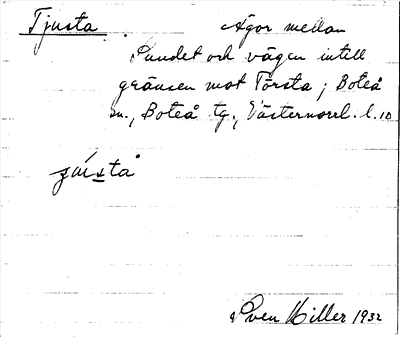 Tjusta. Ägor mellan
Sundet och vägen intill
gränsen mot Törsta; Boteå
sn., Boteå tg., Västernorrl. l. 10
Sven Hiller 1932